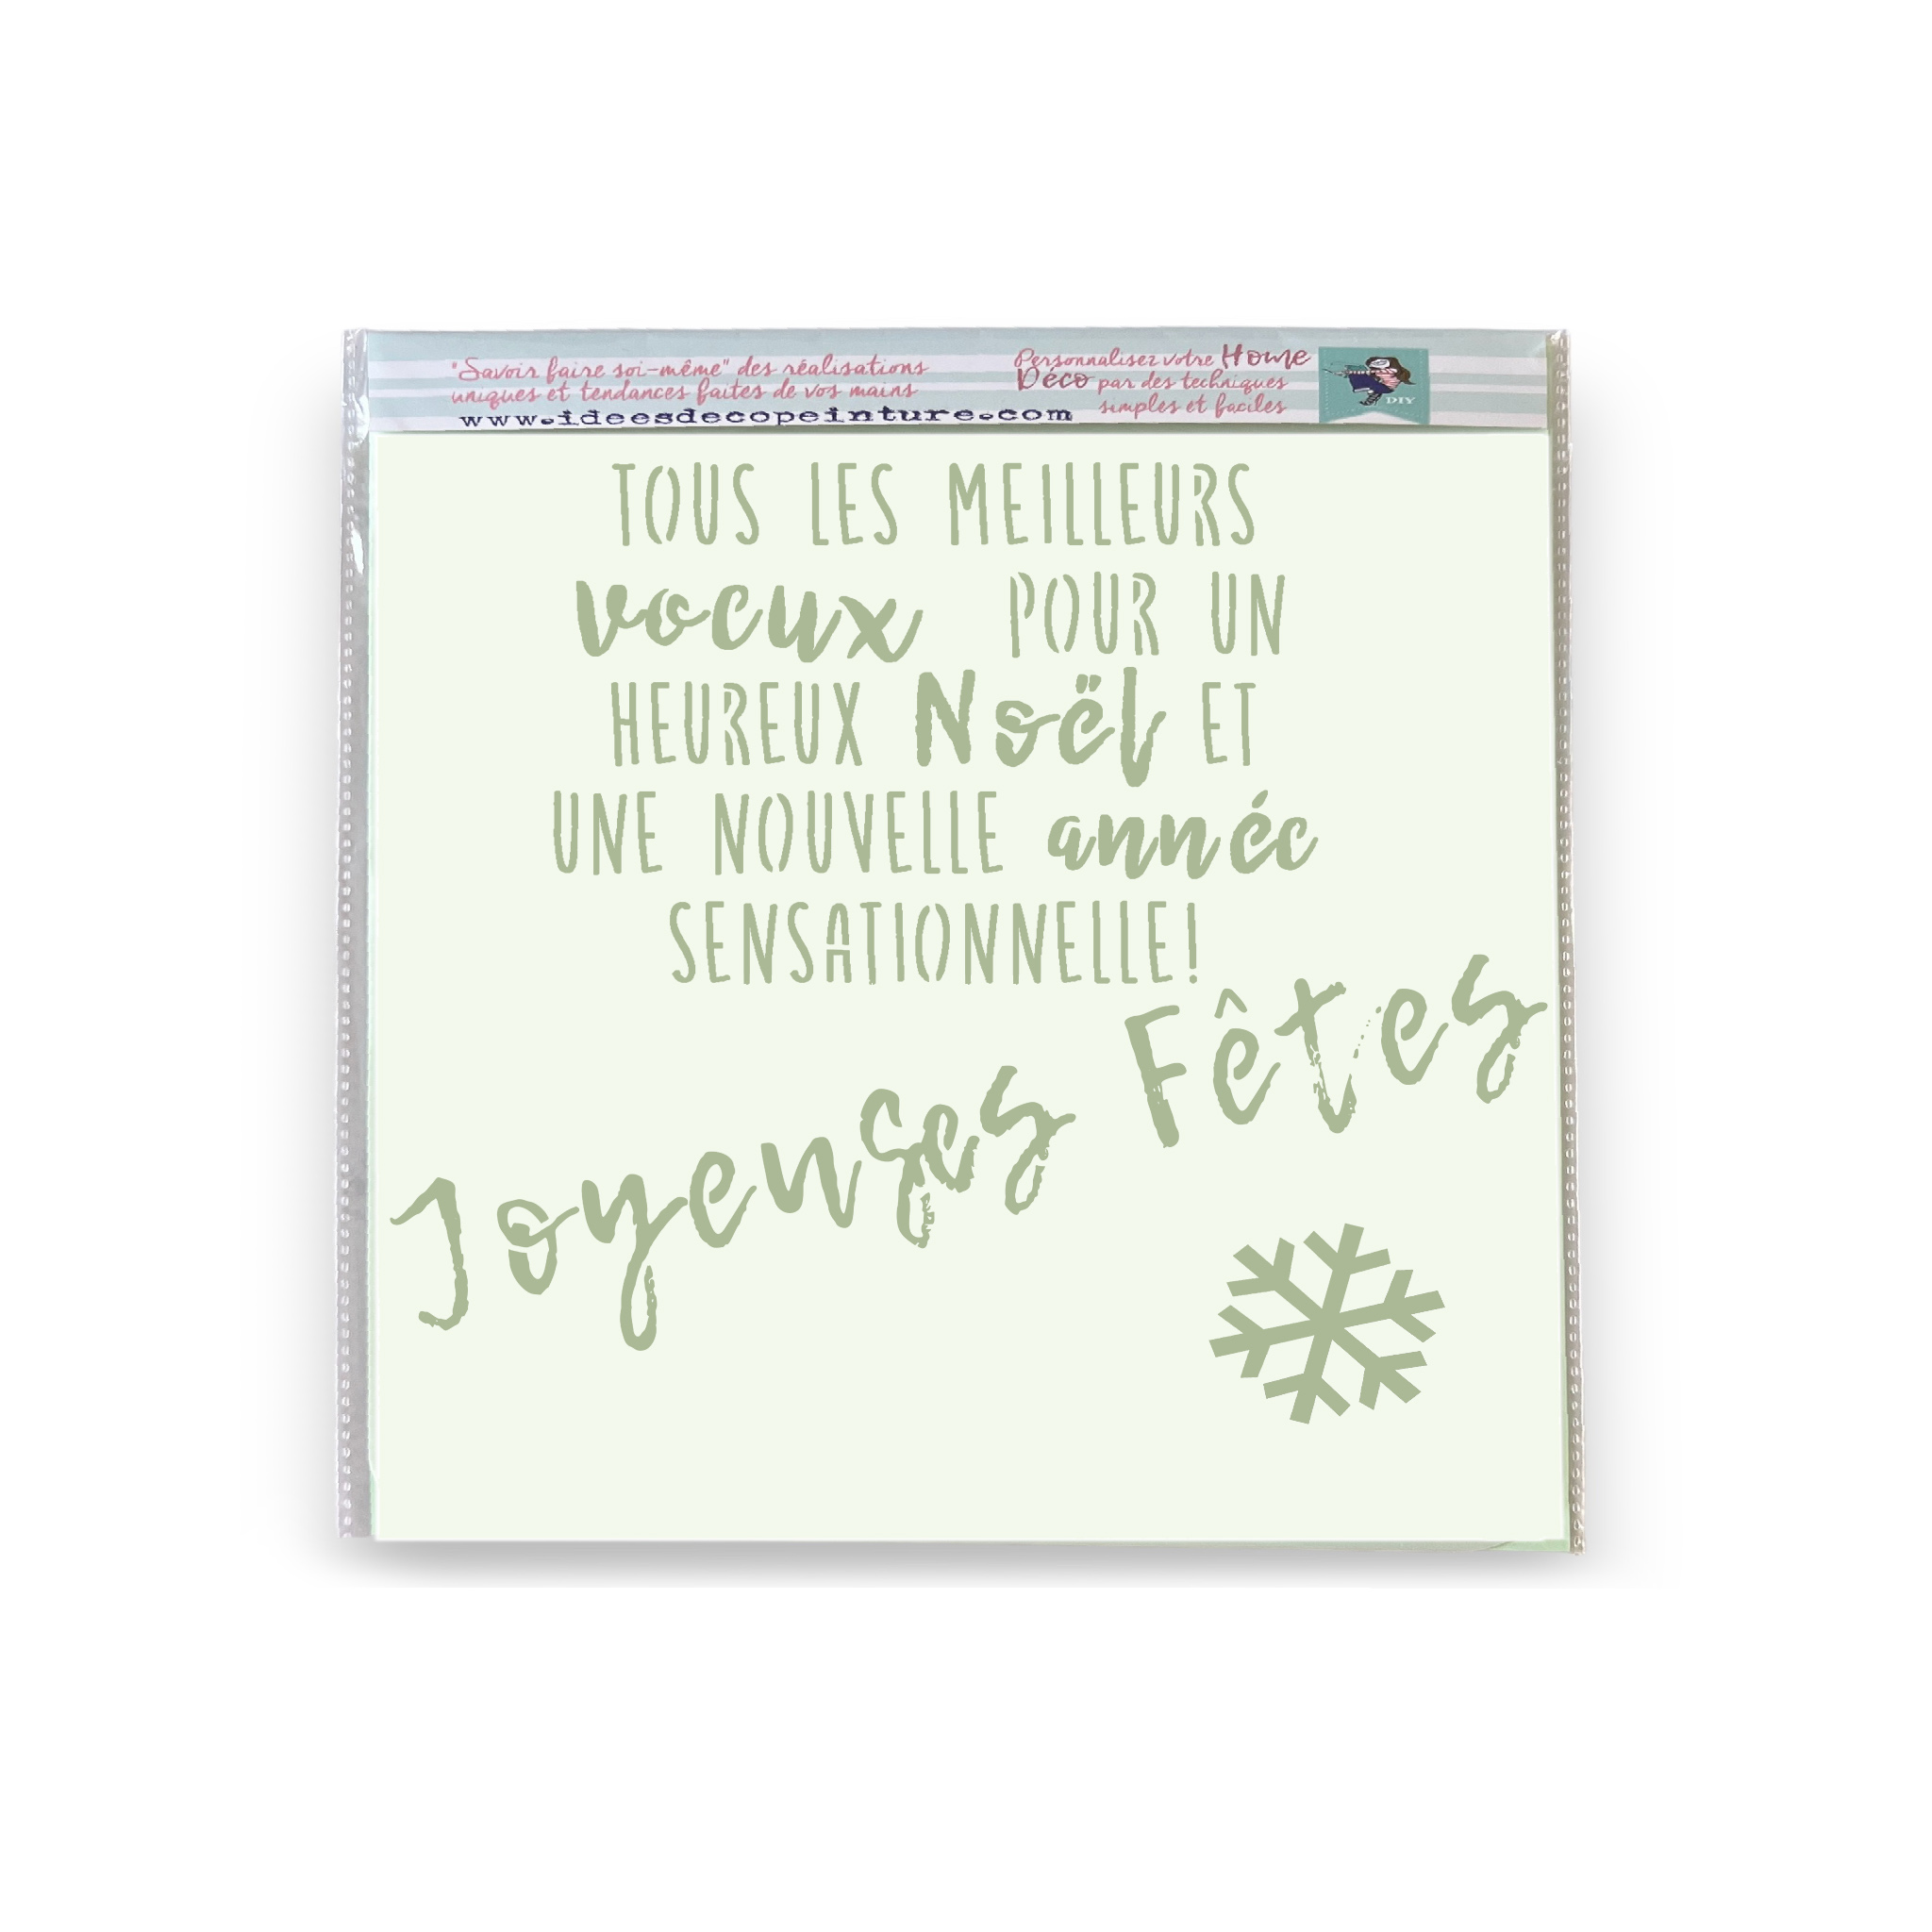 "Savoir faire soi-même" des réalisations
uniques et tendances faites de vos mains
www.ideesdecopeinture.com
Personnalisez votre Home
Déco par des techniques
simples et faciles
DIY
TOUS LES MEILLEURS
voeux POUR UN
HEUREUX Noël ET
UNE NOUVELLE année
SENSATIONNELLE!
Joyeuses Fêtes